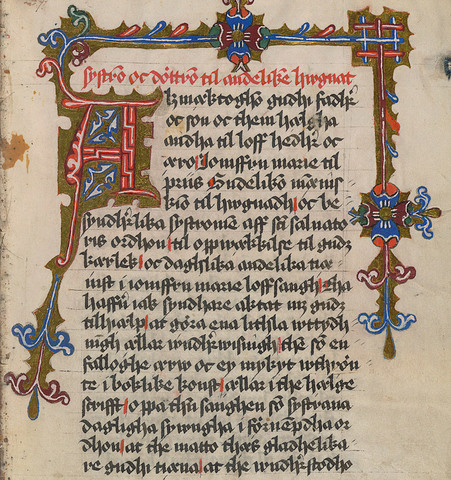 systrō oc dōttrō til andelikē hwgnat
Alzmæktoghō gudhi fadhr
oc son oc them hælgha
andha til loff hedhr oc
æro Jomffrvn marie til
priis Gudelikō mænnis
kiō til hwgnadh oc be
syndhrlika systromē aff sā saluato
ris ordhon til opwækkilse til gudz
kærlek oc daghlika andelika tiæ
nist i iomffrvn marie loffsangh Tha
haffr iak syndhare aktat mz gudz
tilhiælp at göra ena litsla wttydh
nigh ællar wndhrwisnigh thr sō en
falloghe ærw oc ey mykyt wthrön
te i boklike konst ællar i the hælge
scrifft oppa thn sanghen sō systrana
daghligha sywngha i fornēpdha or
dhon at the matto thæs gladhelika
re gudhi tiæna at the wndhrstodho